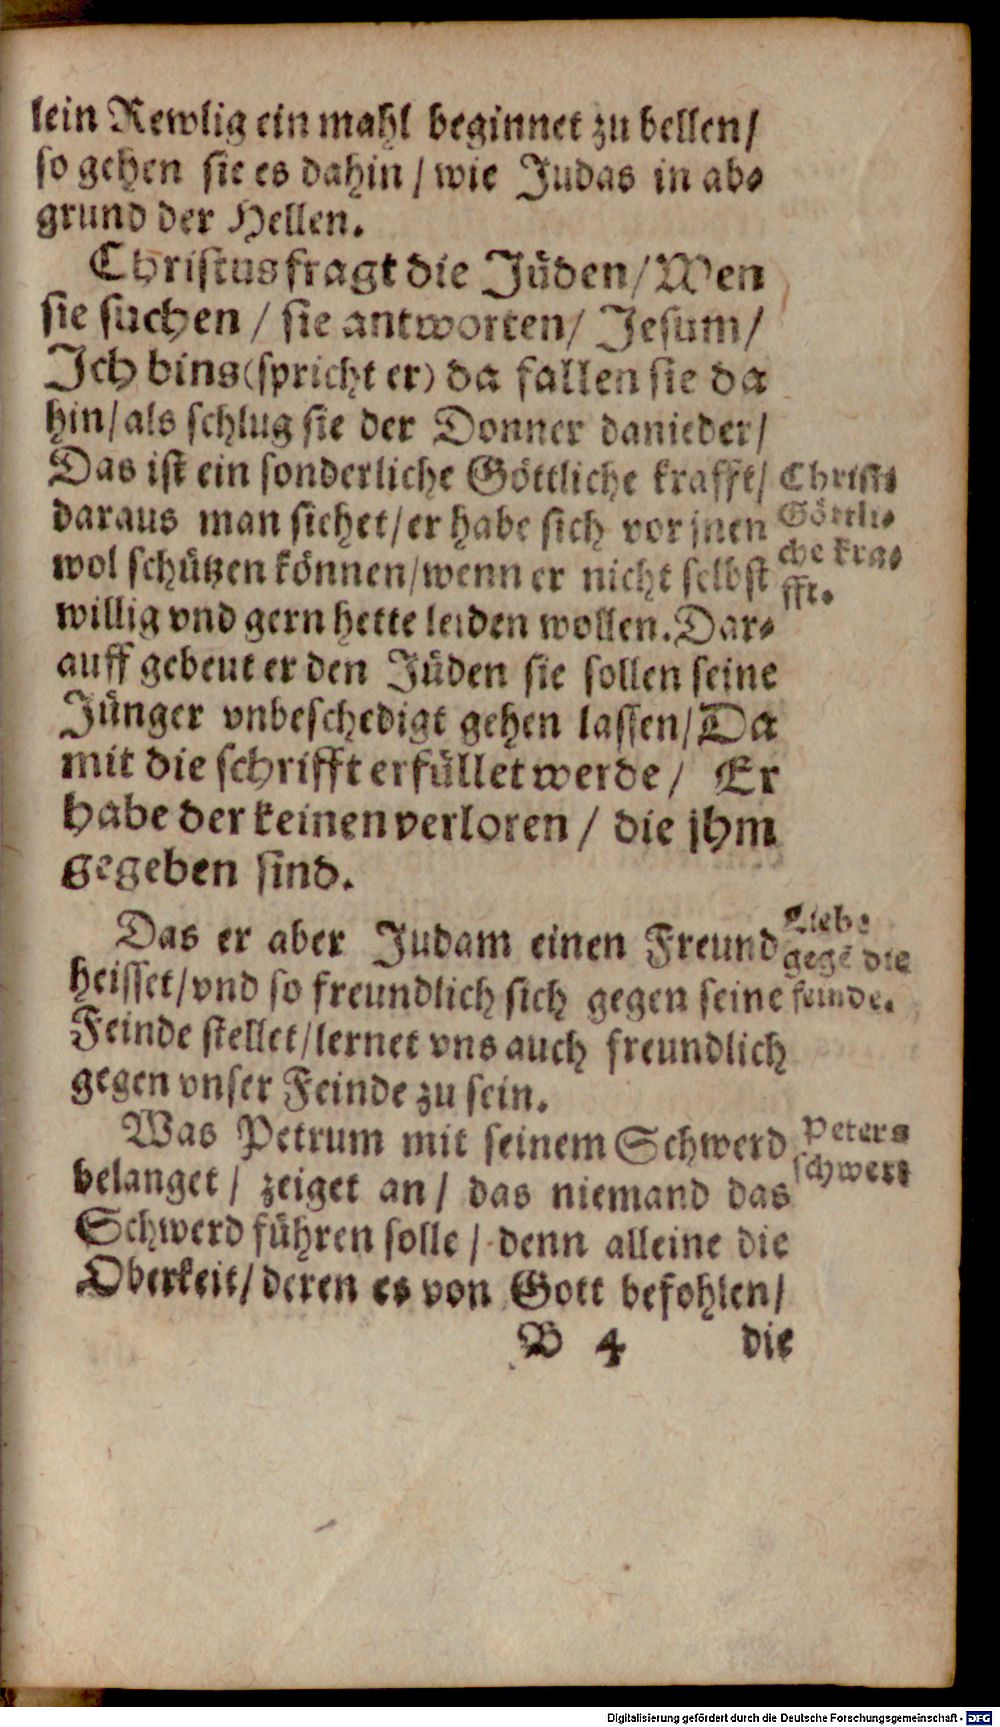 lein Rewlig ein mahl beginnet zu bellen/
so gehen sie es dahin / wie Judas in ab⸗
grund der Hellen.
Christus fragt die Jüden/ Wen
sie suchen / sie antworten/ Jesum/
Ich bins (spricht er) da fallen sie da
hin/ als schlug sie der Donner danieder/
Das ist ein sonderliche Göttliche krafft/
daraus man sichet/ er habe sich vor jnen
wol schützen können/ wenn er nicht selbst
willig vnd gern hette leiden wollen. Dar⸗
auff gebeut er den Jüden sie sollen seine
Jünger vnbeschedigt gehen lassen/ Da
mit die schrifft erfüllet werde/ Er
habe der keinen verloren / die jhm
gegeben sind.
Christi
Göttli⸗
che kra⸗
fft.
Das er aber Judam einen Freund
heisset/ vnd so freundlich sich gegen seine
Feinde stellet/ lernet vns auch freundlich
gegen vnser Feinde zu sein.
Liebe
gegē die
feinde.
Was Petrum mit seinem Schwerd
belanget / zeiget an / das niemand das
Schwerd führen solle / denn alleine die
Oberkeit/ deren es von Gott befohlen/
Peters
schwert
B 4 die
Digitalisierung gefördert durch die Deutsche Forschungsgemeinschaft - DFG